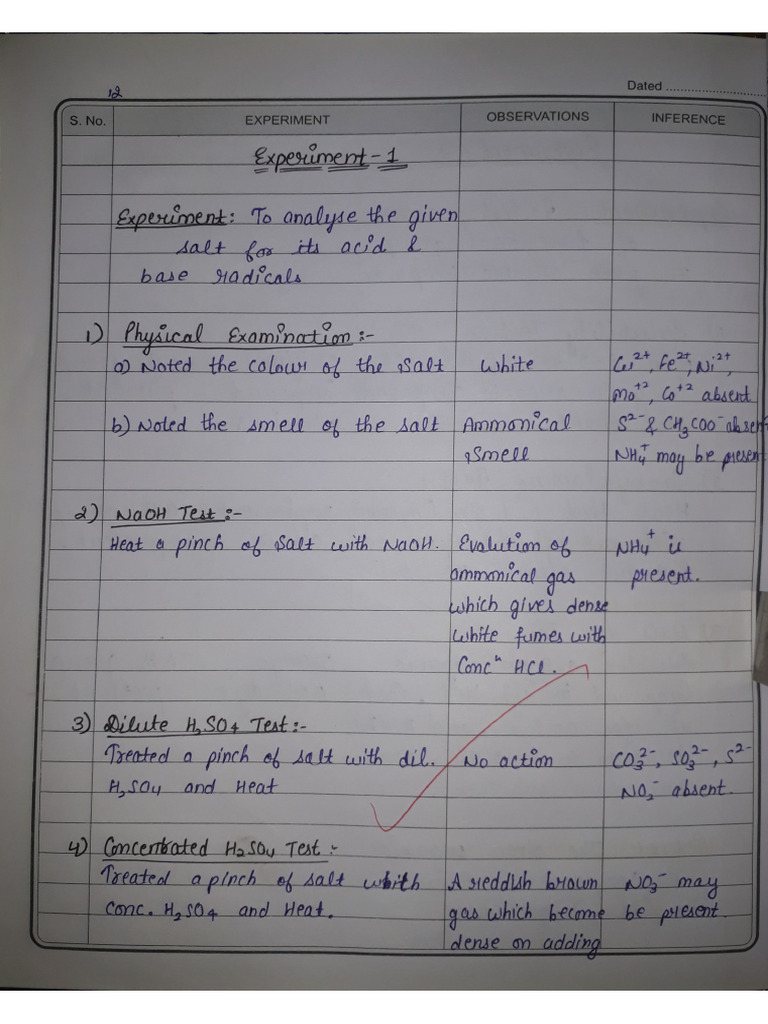 12
Dated
S. No. EXPERIMENT OBSERVATIONS INFERENCE
Experiment-1
Experiment: To analyse the given
salt for its acid &
base radicals
1) Physical Examination:-
a) Noted the colour of the salt White Cu²⁺, Fe²⁺, Ni²⁺,
Mo⁺², Co⁺² absent
b) Noted the smell of the salt Ammonical S²⁻ & CH₃COO⁻ absent
smell NH₄⁺ may be present
2) NaOH Test:-
Heat a pinch of salt with NaOH. Evalution of NH₄⁺ is
ammonical gas present.
which gives dense
white fumes with
Concⁿ HCl.
3) Dilute H₂SO₄ Test:-
Treated a pinch of salt with dil. No action CO₃²⁻, SO₃²⁻, S²⁻
H₂SO₄ and Heat NO₂⁻ absent.
4) Concentrated H₂SO₄ Test:-
Treated a pinch of salt with A reddish brown NO₃⁻ may
conc. H₂SO₄ and Heat. gas which become be present.
dense on adding